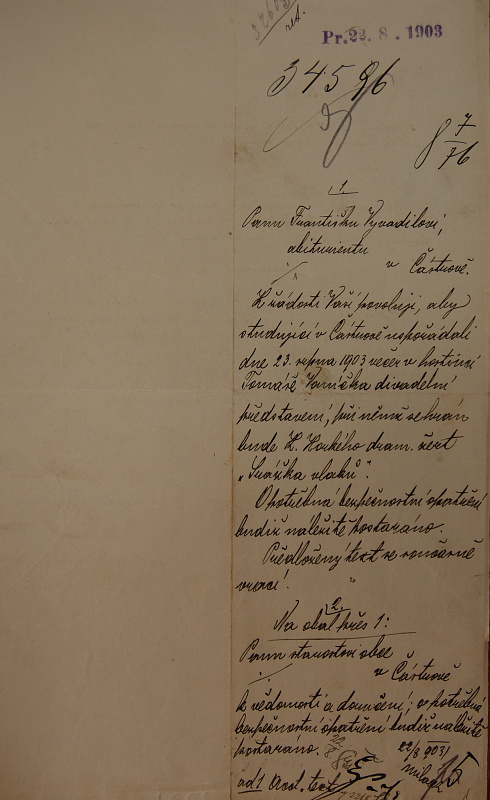 Pr. 22. 8. 1903
34596
8 7/76
1.
Panu Františku Vyvadilovi,
abiturientu
v Částrově.
K žádosti Vaší povoluji, aby
studující v Částrově uspořádali
dne 23. srpna 1903 večer v hostinci
Tomáše Vaníčka divadelní
představení, při němž sehrán
bude K. Horkého dram. žert
„Srážka vlaků".
O potřebná bezpečnostní opatření
budiž náležitě postaráno.
Předložený text se současně
vrací.
2.
Na obal přes 1:
Panu starostovi obce
v Částrově
k vědomosti a dodání; o potřebná
bezpečnostní opatření budiž náležitě
postaráno.
22/8 903
ad 1 text